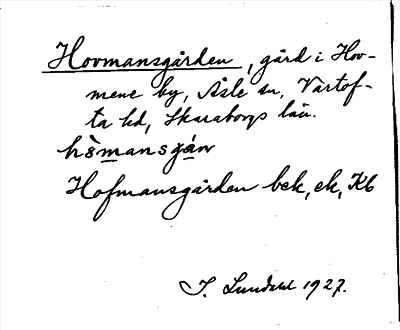 Hovmansgården, gård i Hov-
mene by, Åsle sn, Vartof-
ta hd, Skaraborgs län.
hòmansgán
Hofmansgården bek, ek, Kb
I. Lundahl 1927.